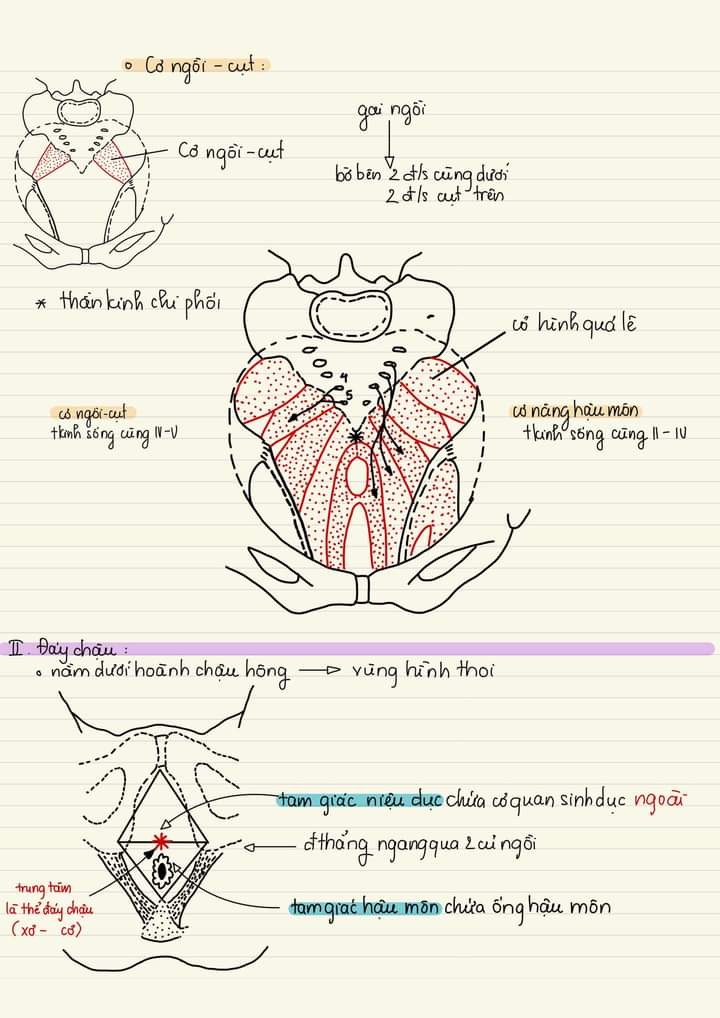 Cơ ngồi - cụt :
Cơ ngồi-cụt
gai ngồi
bờ bên 2 đ/s cùng dưới
2 đ/s cụt trên
* thần kinh chi phối
cơ hình quả lê
4
5
cơ ngồi-cụt
tkinh sống cùng IV-V
cơ nâng hậu môn
tkinh sống cùng II - IV
II. Đáy chậu :
nằm dưới hoành chậu hông → vùng hình thoi
tam giác niệu dục chứa cơ quan sinh dục ngoài
đ thẳng ngang qua 2 củ ngồi
trung tâm
là thể đáy chậu
(xơ - cơ)
tam giác hậu môn chứa ống hậu môn